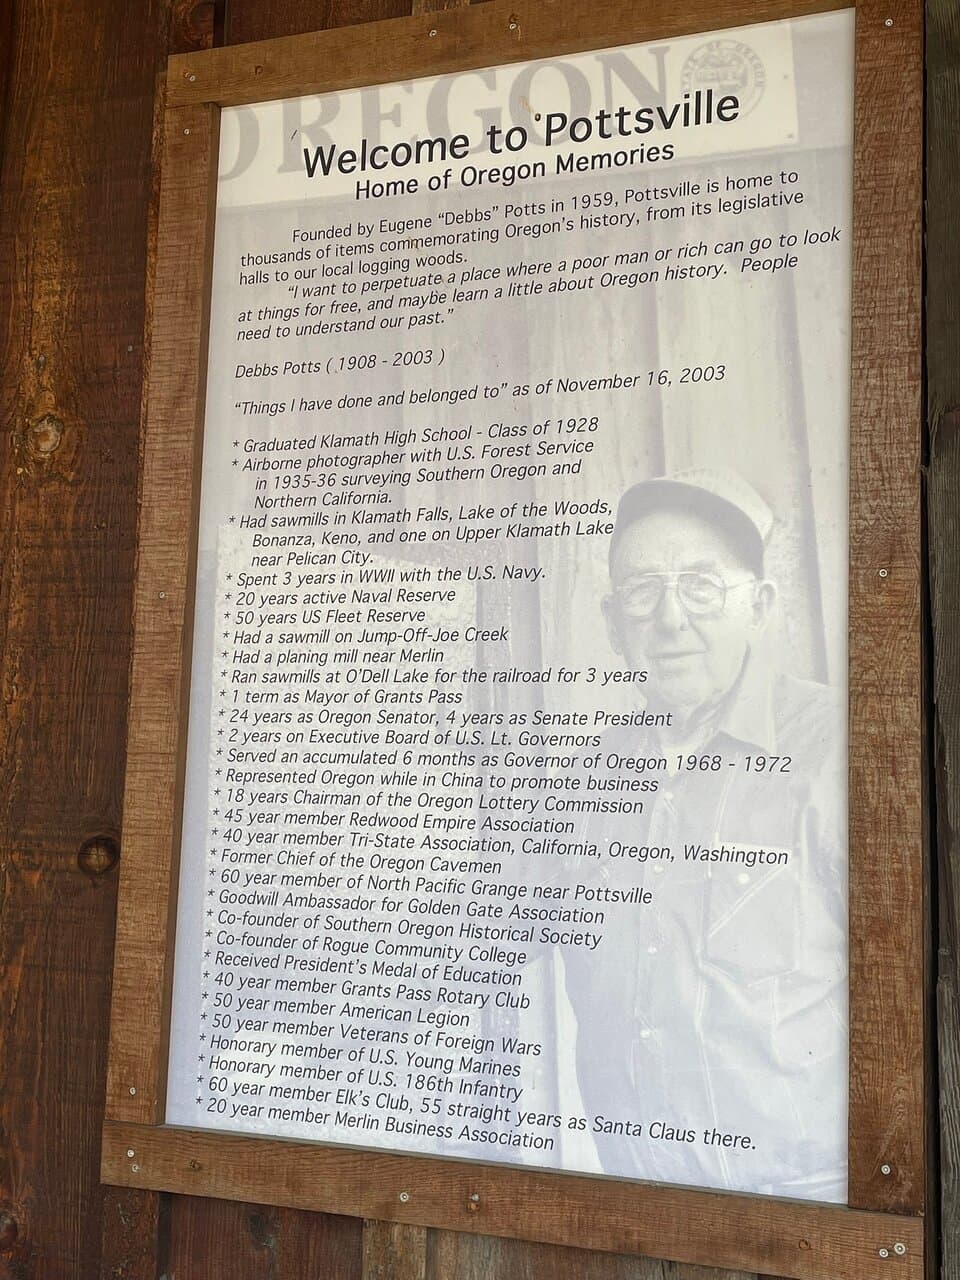 OREGON
STATE OF OREGON
Welcome to Pottsville
Home of Oregon Memories
Founded by Eugene “Debbs” Potts in 1959, Pottsville is home to
thousands of items commemorating Oregon’s history, from its legislative
halls to our local logging woods.
“I want to perpetuate a place where a poor man or rich can go to look
at things for free, and maybe learn a little about Oregon history. People
need to understand our past.”
Debbs Potts ( 1908 - 2003 )
“Things I have done and belonged to” as of November 16, 2003
* Graduated Klamath High School - Class of 1928
* Airborne photographer with U.S. Forest Service
in 1935-36 surveying Southern Oregon and
Northern California.
* Had sawmills in Klamath Falls, Lake of the Woods,
Bonanza, Keno, and one on Upper Klamath Lake
near Pelican City.
* Spent 3 years in WWII with the U.S. Navy.
* 20 years active Naval Reserve
* 50 years US Fleet Reserve
* Had a sawmill on Jump-Off-Joe Creek
* Had a planing mill near Merlin
* Ran sawmills at O’Dell Lake for the railroad for 3 years
* 1 term as Mayor of Grants Pass
* 24 years as Oregon Senator, 4 years as Senate President
* 2 years on Executive Board of U.S. Lt. Governors
* Served an accumulated 6 months as Governor of Oregon 1968 - 1972
* Represented Oregon while in China to promote business
* 18 years Chairman of the Oregon Lottery Commission
* 45 year member Redwood Empire Association
* 40 year member Tri-State Association, California, Oregon, Washington
* Former Chief of the Oregon Cavemen
* 60 year member of North Pacific Grange near Pottsville
* Goodwill Ambassador for Golden Gate Association
* Co-founder of Southern Oregon Historical Society
* Co-founder of Rogue Community College
* Received President’s Medal of Education
* 40 year member Grants Pass Rotary Club
* 50 year member American Legion
* 50 year member Veterans of Foreign Wars
* Honorary member of U.S. Young Marines
* Honorary member of U.S. 186th Infantry
* 60 year member Elk’s Club, 55 straight years as Santa Claus there.
* 20 year member Merlin Business Association